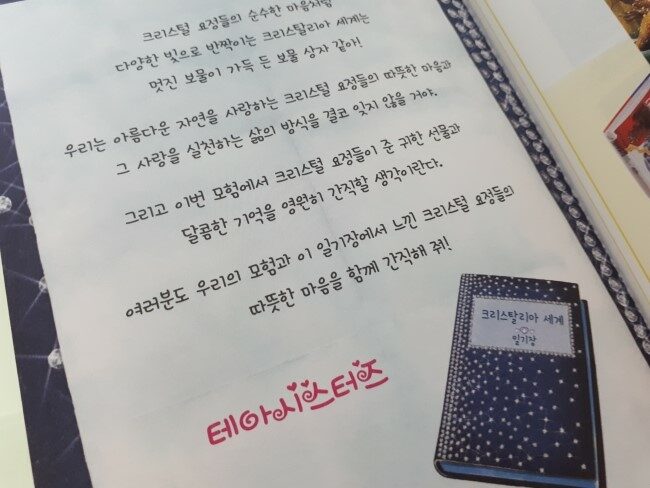 크리스털 요정들의 순수한 마음처럼
다양한 빛으로 반짝이는 크리스탈리아 세계는
멋진 보물이 가득 든 보물 상자 같아!
우리는 아름다운 자연을 사랑하는 크리스털 요정들의 따뜻한 마음과
그 사랑을 실천하는 삶의 방식을 결코 잊지 않을 거야.
그리고 이번 모험에서 크리스털 요정들이 준 귀한 선물과
달콤한 기억을 영원히 간직할 생각이란다.
여러분도 우리의 모험과 이 일기장에서 느낀 크리스털 요정들의
따뜻한 마음을 함께 간직해 줘!
테아시스터즈
크리스탈리아 세계
일기장